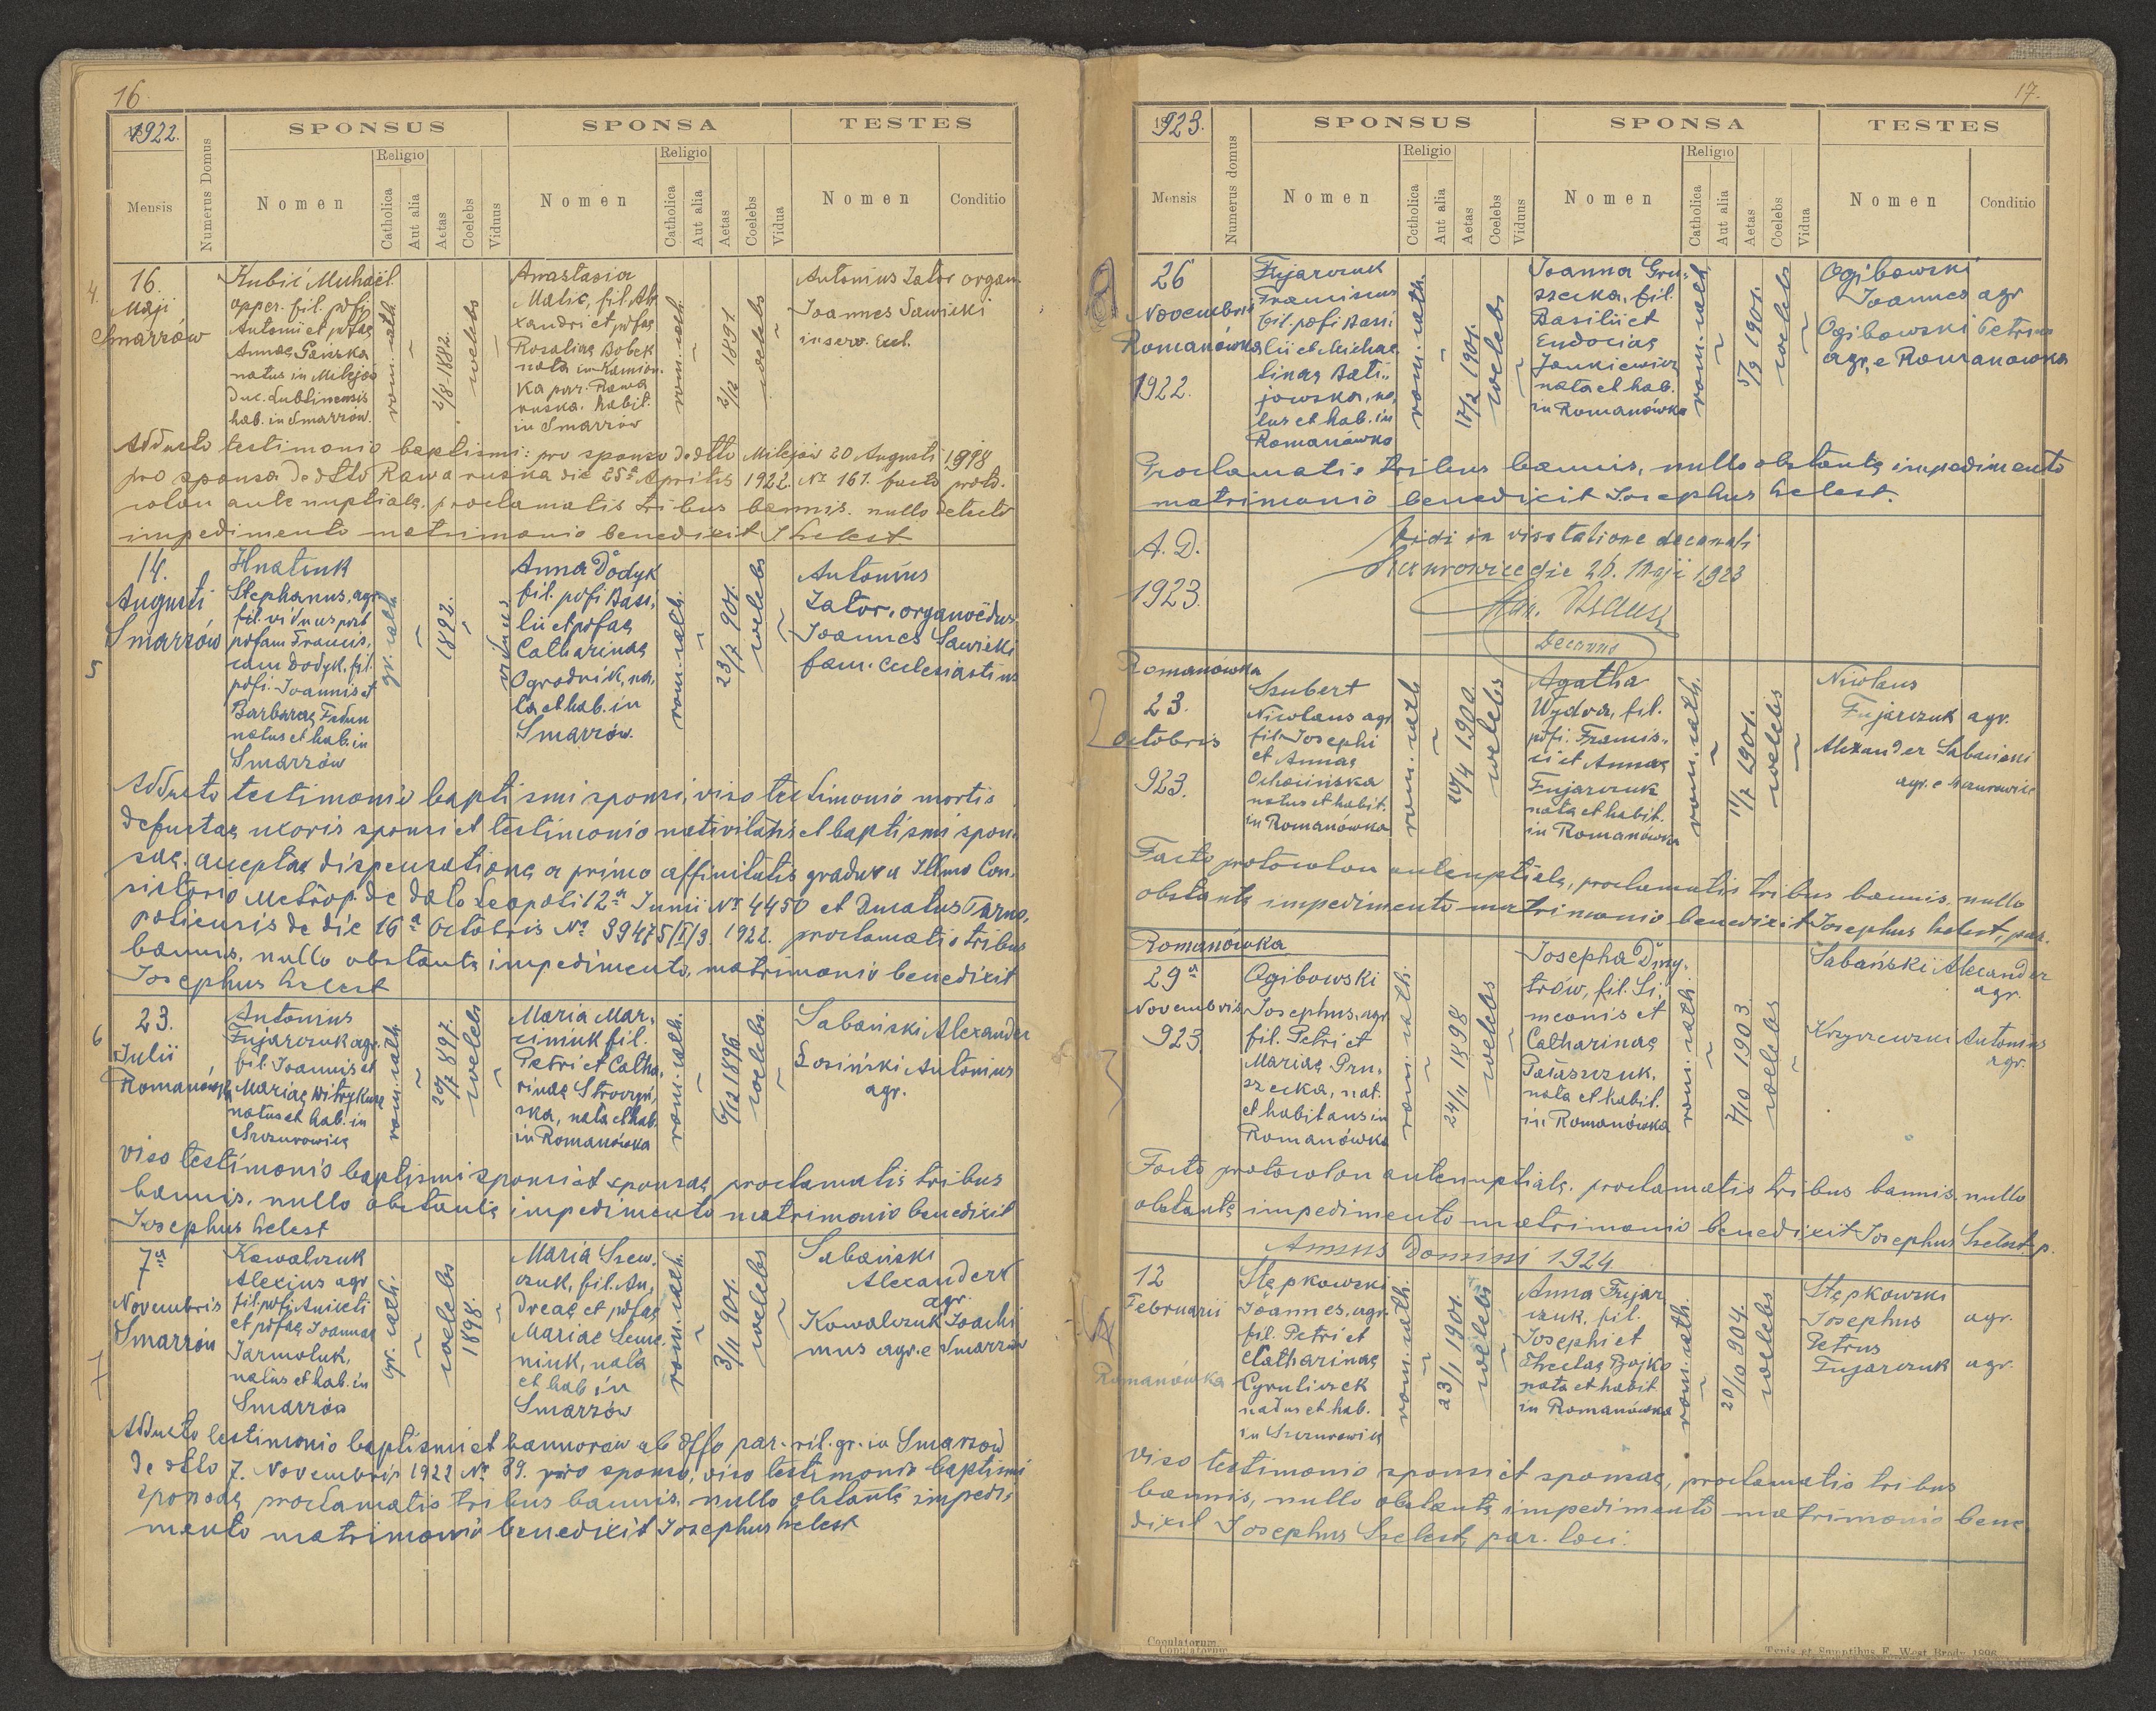 16.
1922.
SPONSUS
SPONSA
TESTES
Mensis
Numerus Domus
Nomen
Religio
Catholica
Aut alia
Aetas
Coelebs
Viduus
Nomen
Religio
Catholica
Aut alia
Aetas
Coelebs
Vidua
Nomen
Conditio
4.
16.
Maji
Smarzów
Kubić Michaël
opper. fil. pdfi
Antonii et pdfae
Annae
natus in Milejów
Duc. Lublinensis
hab. in Smarzów.
rom. cath.
2/8 1882.
coelebs
Anastasia
Malic, fil. Ale
xandri et pdfae
Rosaliae Bobek
nata in Kamion
ka par. Rawa
ruska. habit.
in Smarzów
rom. cath.
2/12 1891.
coelebs
Antonius Zator organ.
Joannes Sawicki
in serv. Eccl.
Adducto testimonio baptismi: pro sponso de dtto Milejów 20 Augusti 1918
pro sponsa de dtto Rawa ruska die 25ta Aprilis 1922. No 161. facto proto.
colon ante nuptiale, proclamatis tribus bannis. nullo detecto
impedimento matrimonio benedixit J Szelest
5
14.
Augusti
Smarzów
Hnatiuk
Stephanus, agr.
fil. viduus post
pdfam Francis,
cam Dodyk. fil.
pdfi. Joannis et
Barbarae Fedun
natus et hab. in
Smarzów
gr. cath.
1892.
viduus
Anna Dodyk
fil. pdfi Basi,
lii et pdfae
Catharinae
Ogrodnik, na,
ta et hab. in
Smarzów.
rom. cath.
23/7 901.
coelebs
Antonius
Zator. organoedus
Joannes Sawicki
fam. ecclesiasticus
Adducto testimonio baptismi sponsi, viso testimonio mortis
defuctae uxoris sponsi et testimonio nativitatis et baptismi spon,
sae. accepta dispensatione a primo affinitatis gradu a Illmo Con,
sistorio Metrop. de dato Leopoli 12a Junii No 4450 et Ducatus Tarno,
poliensis de die 16a Octobris No 39475/I/3. 1922. proclamatis tribus
bannis. nullo obstante impedimento, matrimonio benedixit
Josephus Szelest
6
23.
Julii
Romanówka
Antonius
Fujarczuk agr.
fil. Joannis et
Mariae Witrykusz
natus et hab. in
Szczurowice
rom. cath.
20/7 897.
coelebs
Maria Mar,
ciniuk fil.
Petri et Catha,
rinae Stroczyń,
ska, nata et hab.
in Romanówka
rom. cath.
6/12 1896.
coelebs
Sabański Alexander
Łosiński Antonius
agr.
viso testimonio baptismi sponsi et sponsae, proclamatis tribus
bannis. nullo obstante impedimento matrimonio benedixit
Josephus Szelest
7
7a
Novembris
Smarzów
Kowalczuk
Alexius agr
fil. pdfi Aniceti
et pdfae Joannae
Jarmoluk,
natus et hab. in
Smarzów
gr. cath.
coelebs
1898.
Maria Szew,
czuk, fil. An,
dreae et pdfae
Mariae Seme,
niuk, nata
et hab in
Smarzów
rom. cath.
3/11 901.
coelebs
Sabański
Alexander
agr.
Kowalczuk Joachi
mus agr. e Smarzów
Adducto testimonio baptismi et bannorum ab Offo par. rit. gr. in Smarzow
de dtto 7. Novembris 1922 No 89. pro sponso, viso testimonio baptismi
sponsae, proclamatis tribus bannis. nullo obstante impedi,
mento matrimonio benedixit Josephus Szelest
17.
1923.
SPONSUS
SPONSA
TESTES
Mensis
Numerus domus
Nomen
Religio
Catholica
Aut alia
Aetas
Coelebs
Viduus
Nomen
Religio
Catholica
Aut alia
Aetas
Coelebs
Vidua
Nomen
Conditio
8
26
Novembris
Romanówka
1922.
Fujarczuk
Franciscus
fil. pdfi Basi
lii et Michae
linae Bati,,
jowska, na,
tus et hab. in
Romanówka
rom. cath.
17/2 1901.
coelebs
Joanna Gru,
szecka, fil.
Basilii et
Eudociae
Jankiewicz
nata et hab.
in Romanówka
rom. cath.
5/9 1901.
coelebs
Ogibowski
Joannes agr
Ogibowski Petrus
agr, e Romanowka
Proclamatis tribus bannis, nullo obstante impedimento
matrimonio benedixit Josephus Szelest.
A. D.
1923.
Vidi in visitatione decanali
Szczurowice die 26. Maji 1923
Decanus
Romanówka
23.
Octobris
923.
Szubert
Nicolaus agr
fil. Josephi
et Annae
Ochocińska
natus et habit.
in Romanówka
rom. cath
20/4 1900
coelebs
Agatha
Wydra, fil.
pdfi. Francis,,
ci et Annae
Fujarczuk
nata et habit.
in Romanówka
rom. cath.
11/2 1901.
coelebs
Nicolaus
Fujarczuk agr.
Alexander Sabański
agr. e Szczurowice
Facto protocolon antenuptiale, proclamatis tribus bannis. nullo
obstante impedimento matrimonio benedixit Josephus Szelest, par.
3
Romanówka
29a
Novembris
923.
Ogibowski
Josephus, agr
fil. Petri et
Mariae Gru,
szecka, nat.
et habitans in
Romanówka
rom. cath.
24/11 1898
coelebs
Josepha Dmy,
trów, fil. Si,
meonis et
Catharinae
Panaszczuk,
nata et habit.
in Romanówka
rom. cath.
7/10 1903
coelebs
Sabański Alexander
agr.
Krzyżewski Antonius
agr.
Facto protocolon antenuptiale. proclamatis tribus bannis nullo
obstante impedimento matrimonio benedixit Josephus Szelest p.
Annus Domini 1924
12
Februarii
Romanówka
Stępkowski
Joannes, agr.
fil. Petri et
Catharinae
Cyruliczek
natus et hab.
in Szczurowice
rom. cath.
23/1 1901.
coelebs
Anna Fujar
czuk, fil.
Josephi et
Theclae Bojko
nata et habit
in Romanówka
rom. cath.
20/10 904.
coelebs
Stępkowski
Josephus agr.
Petrus
Fujarczuk agr.
Viso testimonio sponsi et sponsae, proclamatis tribus
bannis, nullo obstante impedimento matrimonio bene
dixit Josephus Szelest, par. loci.
Copulatorum
Copulatorum
Typis et Sumptibus F. West Brody 1896